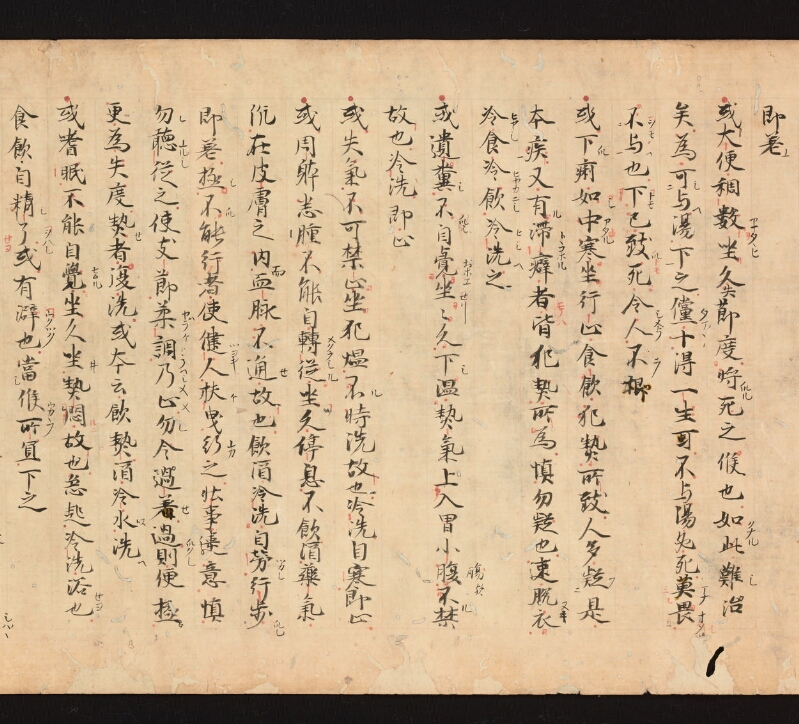 即差
或大便稠数坐久失節度将死之候也如此難治
矣為可与湯下之儻十得一生耳不与湯必死莫畏
不与也下已致死令人不恨
或下痢如中寒坐行止食飲犯熱所致人多疑是
本疾又有滞癖者皆犯熱所為慎勿疑也速脱衣
冷食冷飲冷洗之
或遺糞不自覚坐々久下温熱気上入胃小腹不禁
故也冷洗即止
或失気不可禁止坐犯温不時洗故也冷洗自寒即止
或周躰悉腫不能自転従坐久停息不飲酒薬気
沉在皮膚之内血脉不通故也飲酒冷洗自労行歩
即差極不能行者使健人扶曳行之壮事違意慎
勿聴従之使支節柔調乃止勿令過差過則便極
更為失度熱者復洗或本云飲熱酒冷水洗
或嗜眠不能自覚坐久坐熱悶故也急起冷洗浴也
食飲自精了或有癖也當候所宜下之